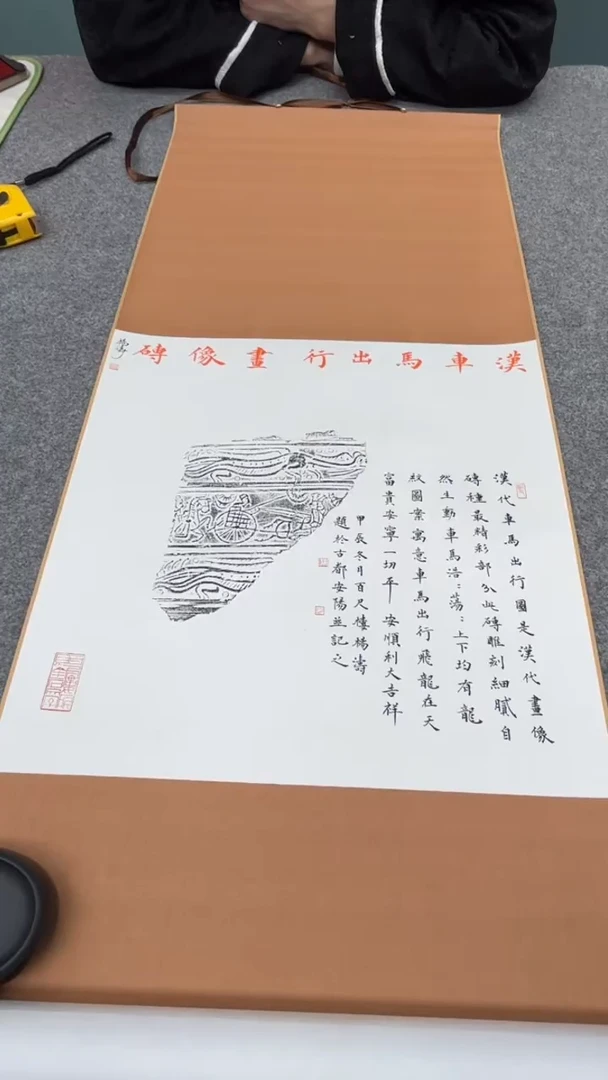 漢車馬出行畫像磚
漢代車馬出行圖是漢代畫像
磚種最精彩部分此磚雕刻細膩自
然生動車馬浩:蕩:上下均有龍
紋圖案寓意車馬出行飛龍在天
富貴安寧一切平安順利大吉祥
甲辰冬月百尺樓楊濤
題於古都安陽並記之